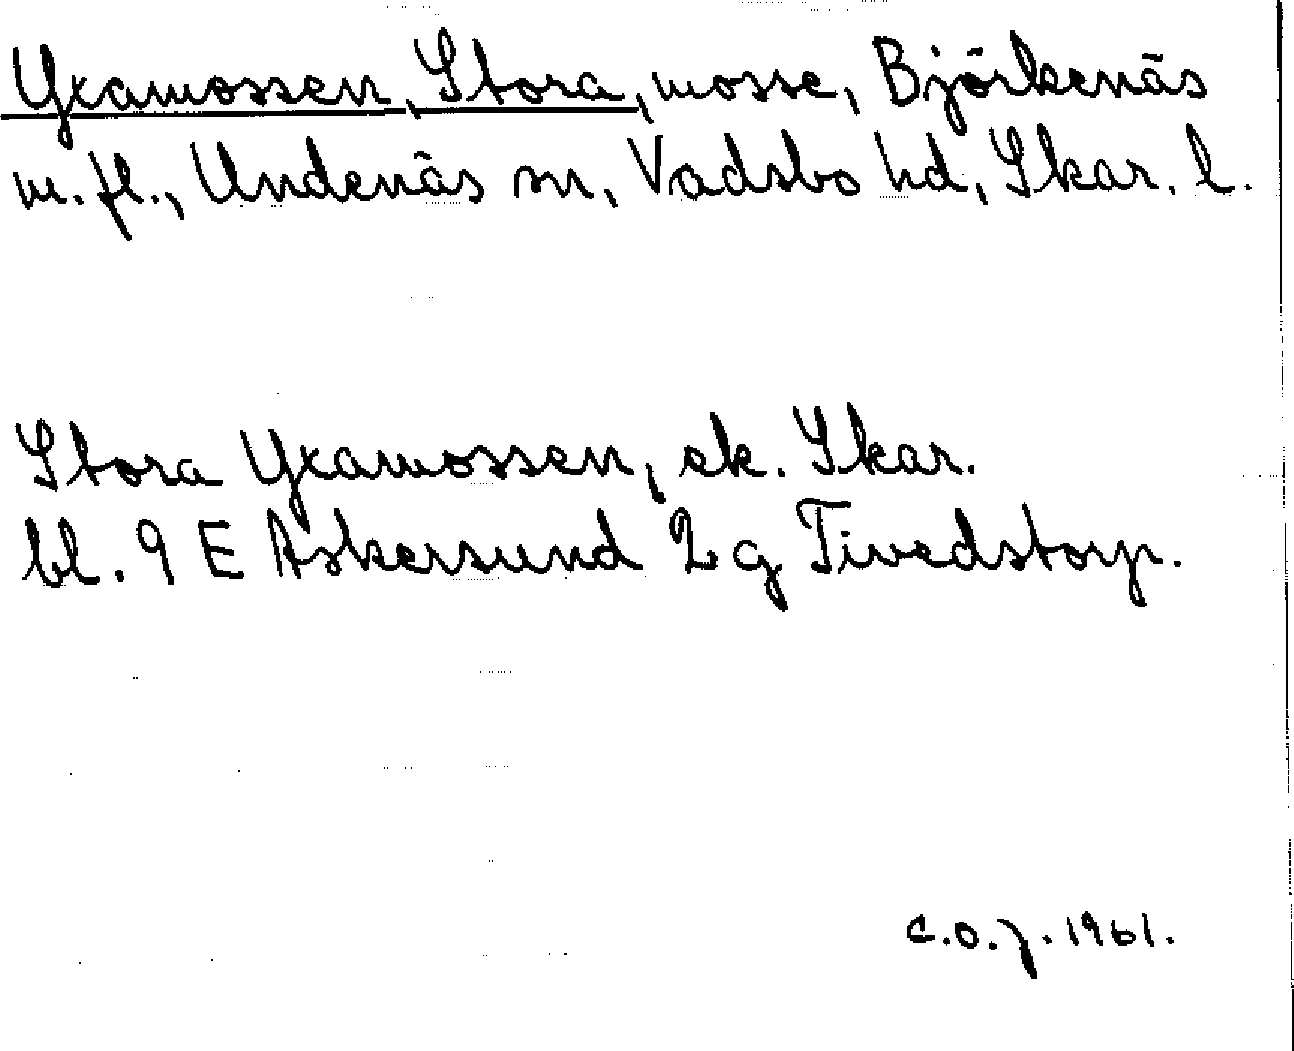 Yxamossen, Stora, mosse, Björkenäs
m. fl., Undenäs sn, Vadsbo hd, Skar. l.
Stora Yxamossen, ek. Skar.
bl. 9 E Askersund 2 g Tivedstorp.
C.O.J. 1961.